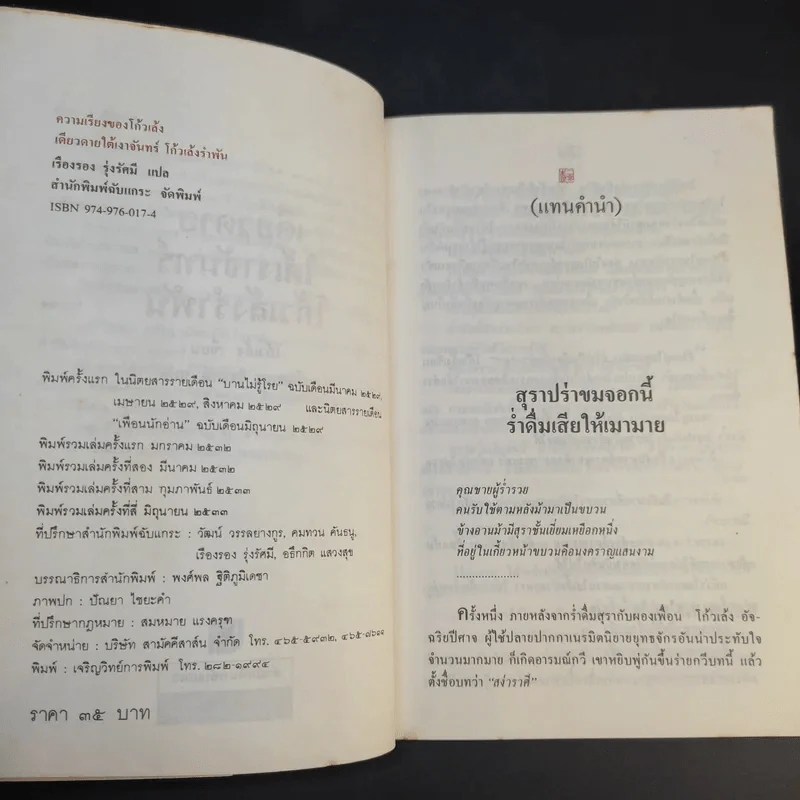 ความเรียงของโก้วเล้ง
เดียวดายใต้เงาจันทร์ โก้วเล้งรำพัน
เรืองรอง รุ่งรัศมี แปล
สำนักพิมพ์ฉับแกระ จัดพิมพ์
ISBN 974-976-017-4
พิมพ์ครั้งแรก ในนิตยสารรายเดือน “บานไม่รู้โรย” ฉบับเดือนมีนาคม ๒๕๒๙,
เมษายน ๒๕๒๙, สิงหาคม ๒๕๒๙ และนิตยสารรายเดือน
“เพื่อนนักอ่าน” ฉบับเดือนมิถุนายน ๒๕๒๙
พิมพ์รวมเล่มครั้งแรก มกราคม ๒๕๓๒
พิมพ์รวมเล่มครั้งที่สอง มีนาคม ๒๕๓๒
พิมพ์รวมเล่มครั้งที่สาม ทุมภาพันธ์ ๒๕๓๓
พิมพ์รวมเล่มครั้งที่สี่ มิถุนายน ๒๕๓๓
ที่ปรึกษาสำนักพิมพ์ฉับแกระ : วัฒน์ วรรลยางกูร, คมทวน คันธนู,
เรืองรอง รุ่งรัศมี, อธึกกิต แสวงสุข
บรรณาธิการสำนักพิมพ์ : พงศ์พล ฐิติภูมิเดชา
ภาพปก : ปัณยา ไชยะคำ
ที่ปรึกษากฎหมาย : สมหมาย แรงครุฑ
จัดจำหน่าย : บริษัท สามัคคีสาส์น จำกัด โทร. ๔๖๕-๕๙๓๒,
พิมพ์ : เจริญวิทย์การพิมพ์ โทร. ๒๘๒-๑๙๙๔
ราคา ๓๕ บาท
(แทนคำนำ)
สุราปร่าขมจอกนี้
ร่ำดื่มเสียให้เมามาย
คุณชายผู้ร่ำรวย
คนรับใช้ตามหลังม้ามาเป็นขบวน
ข้างอานม้ามีสุราชั้นเยี่ยมเหยือกหนึ่ง
ที่อยู่ในเกี้ยวหน้าขบวนคือนงคราญแสนงาม
....................
ครั้งหนึ่ง ภายหลังจากร่ำดื่มสุรากับผองเพื่อน โก้วเล้ง อัจ-
ฉริยปีศาจ ผู้ใช้ปลายปากกาเนรมิตนิยายยุทธจักรอันน่าประทับใจ
จำนวนมากมาย ก็เกิดอารมณ์กวี เขาหยิบพู่กันขึ้นร่ายกวีบทนี้ แล้ว
ตั้งชื่อบทว่า “สง่าราศี”